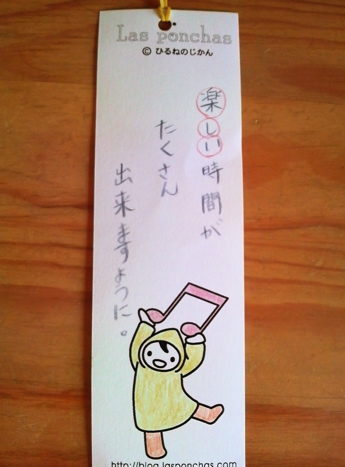 Las ponchas
© ひるねのじかん
楽しい時間が
たくさん
出来ますように。
http://blog.lasponchas.com